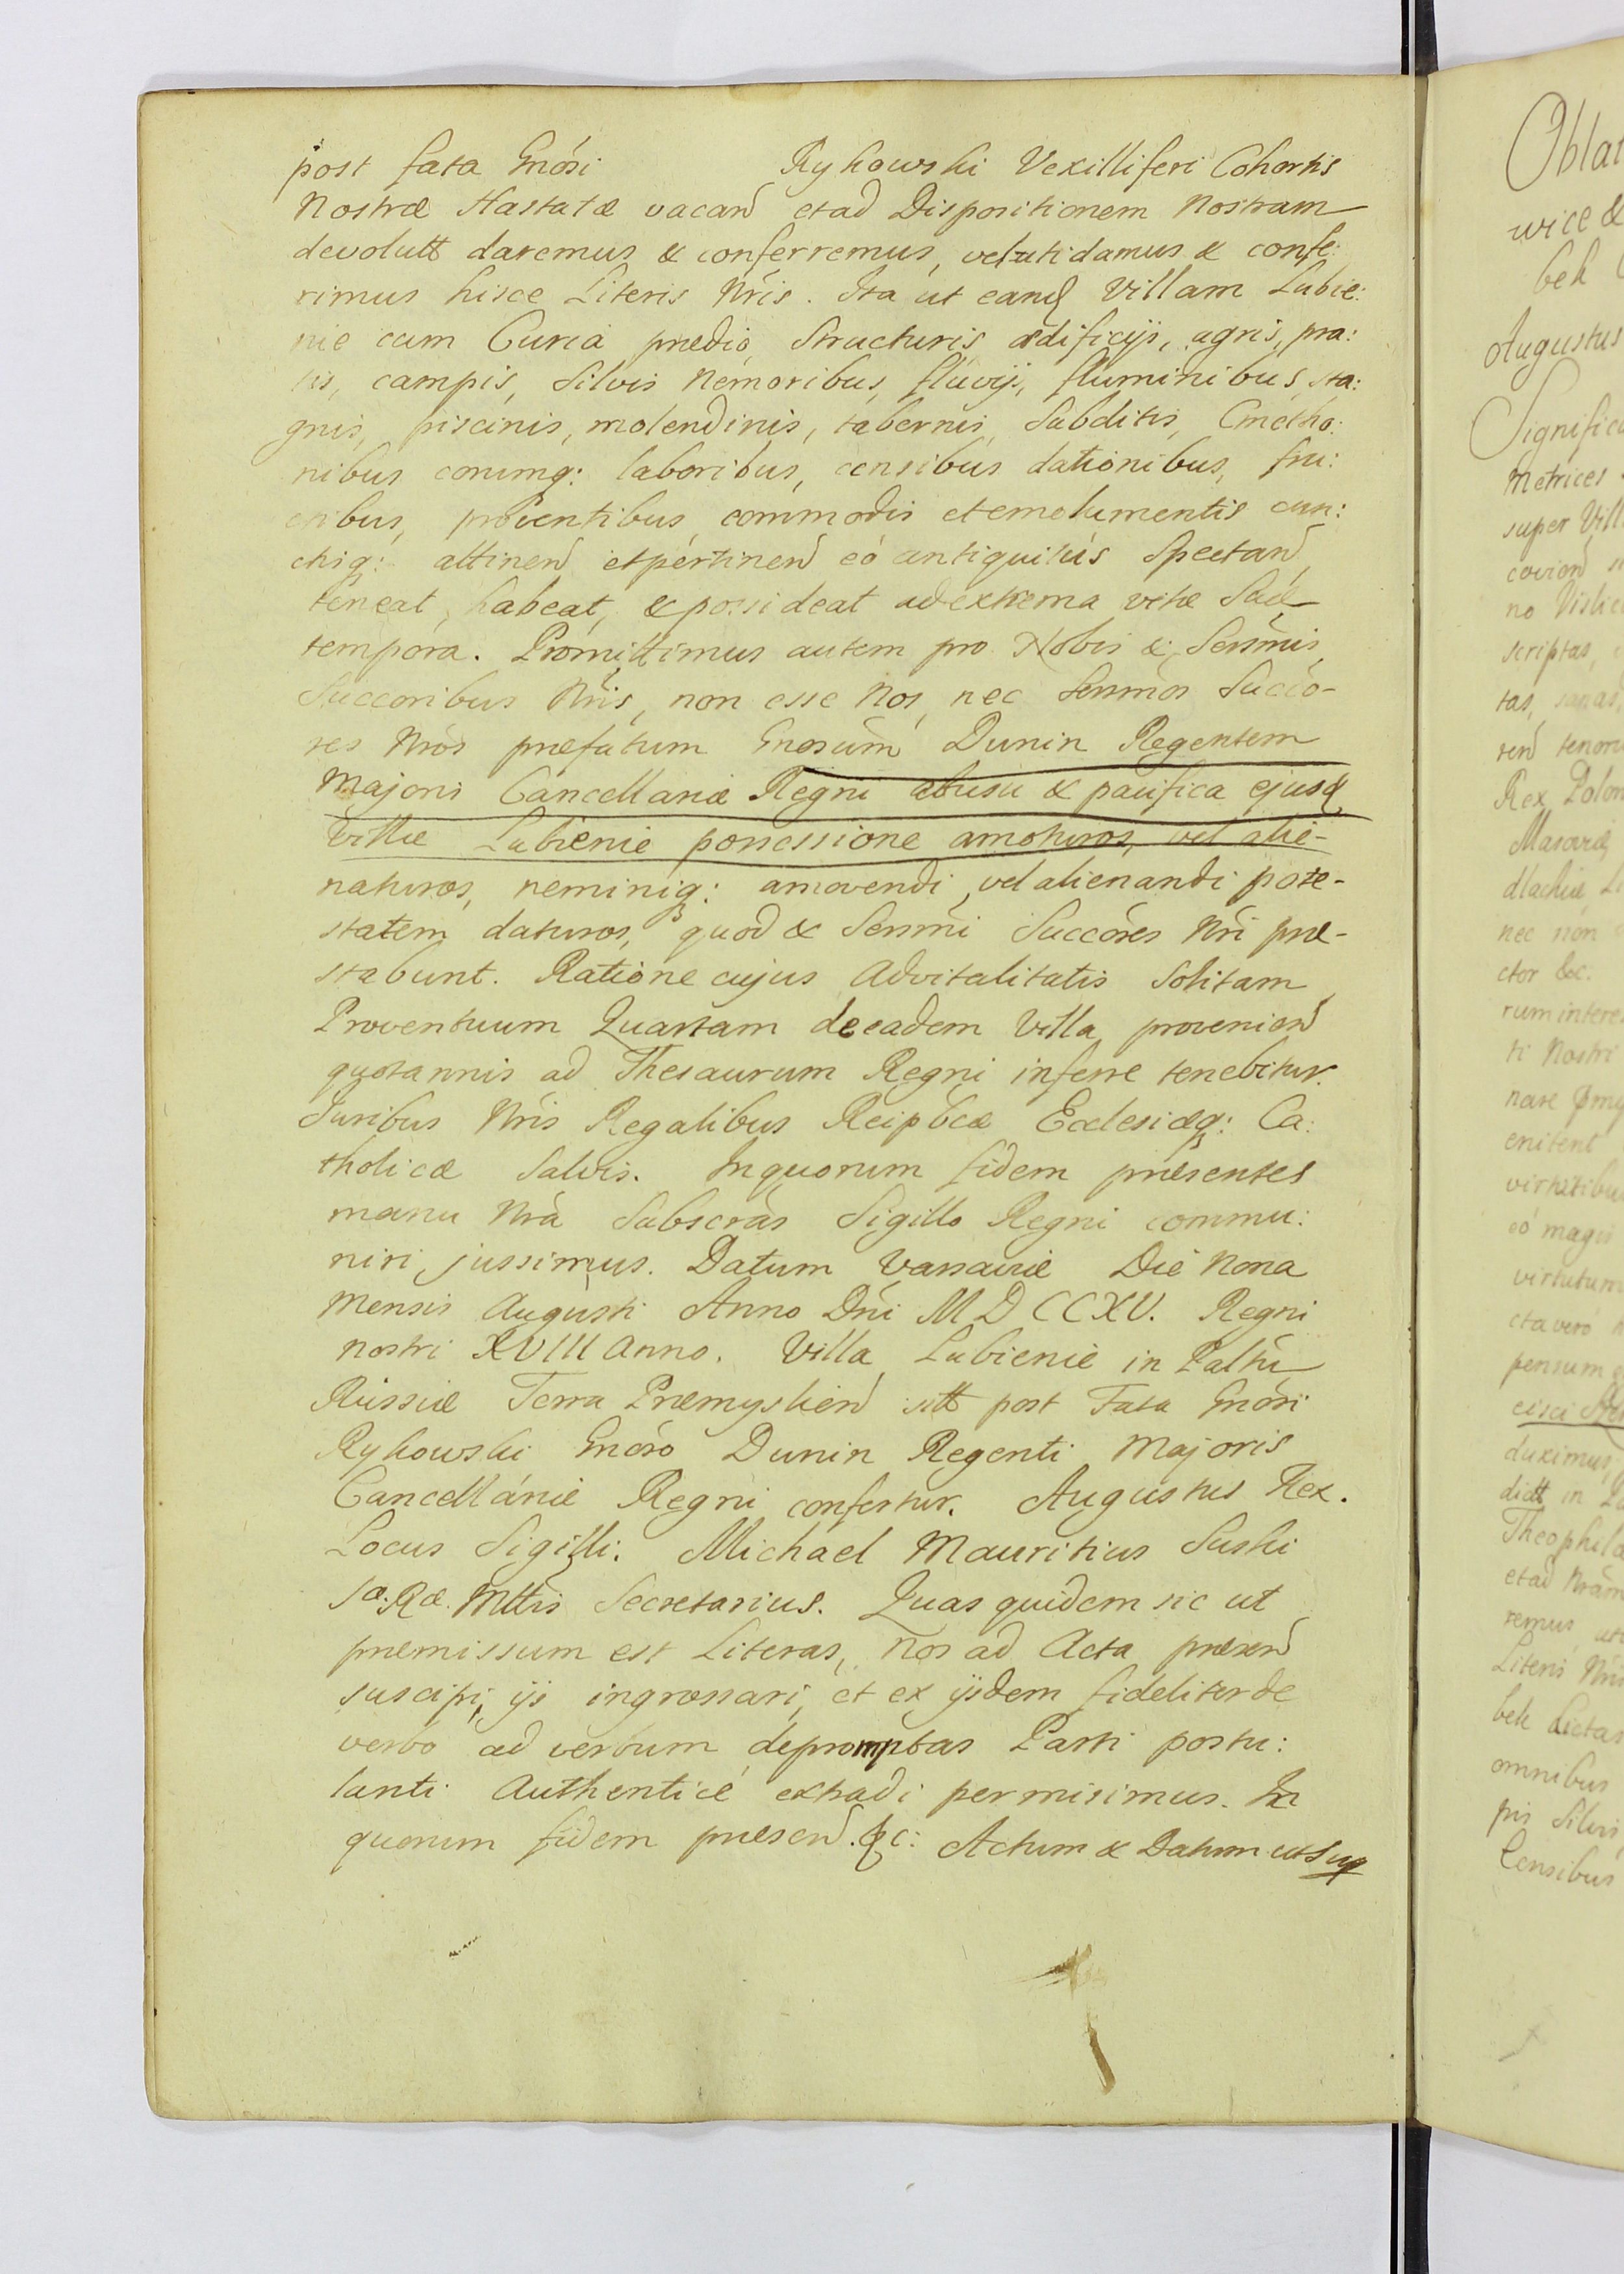 post fata Gnósi Rykowski Vexilliferi Cohortis
Nostræ Hastatæ vacand et ad Dispositionem Nostram
devolutt daremus & conferremus, veluti damus & confe:
rimus hisce Literis Nris. Ita ut eand Villam Lubie:
nie cum Curia prædio, Structuris, ædificijs, agris, pra:
tis, campis, Silvis Nemoribus, fluvijs, fluminibus, sta:
gnis, piscinis, molendinis, tabernis, Subditis, Cmetho:
nibus eorumq: laboribus, censibus dationibus, fru:
ctibus, proventibus, commodis et emolumentis cun:
ctisq: attinend et pertinend eó antiquitús Spectand,
teneat, habeat, & possideat ad extrema vitæ Suæ
tempora. Promittimus autem pro Nobis & Sersmis,
Succoribus Nris, non esse Nos, nec Sersmos Succo-
res Nros præfatum Gnosum Dunin Regentem
Majoris Cancellariæ Regni ab usu & pacifica ejusd
Villæ Lubienie possessione amoturos, vel alie-
naturos, neminiq: amovendi, vel alienandi pote-
statem daturos, quod & Sersmi Succóres Nri præ-
stabunt. Ratione cujus Advitalitatis Solitam
Proventuum Quartam de eadem Villa provenien̄d
quotannis ad Thesaurum Regni inferre tenebitur.
Juribus Nris Regalibus Reipbcæ Ecclesiæq: Ca:
tholicæ Salvis. In quorum fidem præsentes
manu Nrà Subscràs Sigillo Regni commu:
niri jussimus. Datum Varsaviæ Die Nona
Mensis Augusti Anno Dńi MDCCXV. Regni
nostri XVIII Anno. Villa Lubienie in Palttu
Russiæ Terra Præmyslien̄d sitt post Fata Gnósi
Rykowski Gnóso Dunin Regenti Majoris
Cancellariæ Regni confertur. Augustus Rex.
Locus Sigilli. Michael Mauritius Suski
Sæ. Ræ. Mttis Secretarius. Quas quidem sic ut
præmissum est Literas, Nos ad Acta præsend
suscipi, ijs ingrossari, et ex ijsdem fideliter de
verbo ad verbum depromptas Parti postu:
lanti Authenticé extradi permisimus. In
quorum fidem præsend. &c: Actum & Datum ut Sup
Oblat
wice &
bek
Augustus
Signific
Metrices
super Vill
no Vislic
scriptas,
tas, sanas,
rend tenoris
Rex Polon
Masoviæ
dlachiæ Li
nec non
ctor &c.
rum intere
ti Nostri
nare
enitent
virtutibus
eó magis
virtutum
cta veró
pensum
cisci
duximus,
ditt in
Theophila
et ad Nram
remus
Literis Nris
bek dictas
omnibus
pis Silvis
Censibus